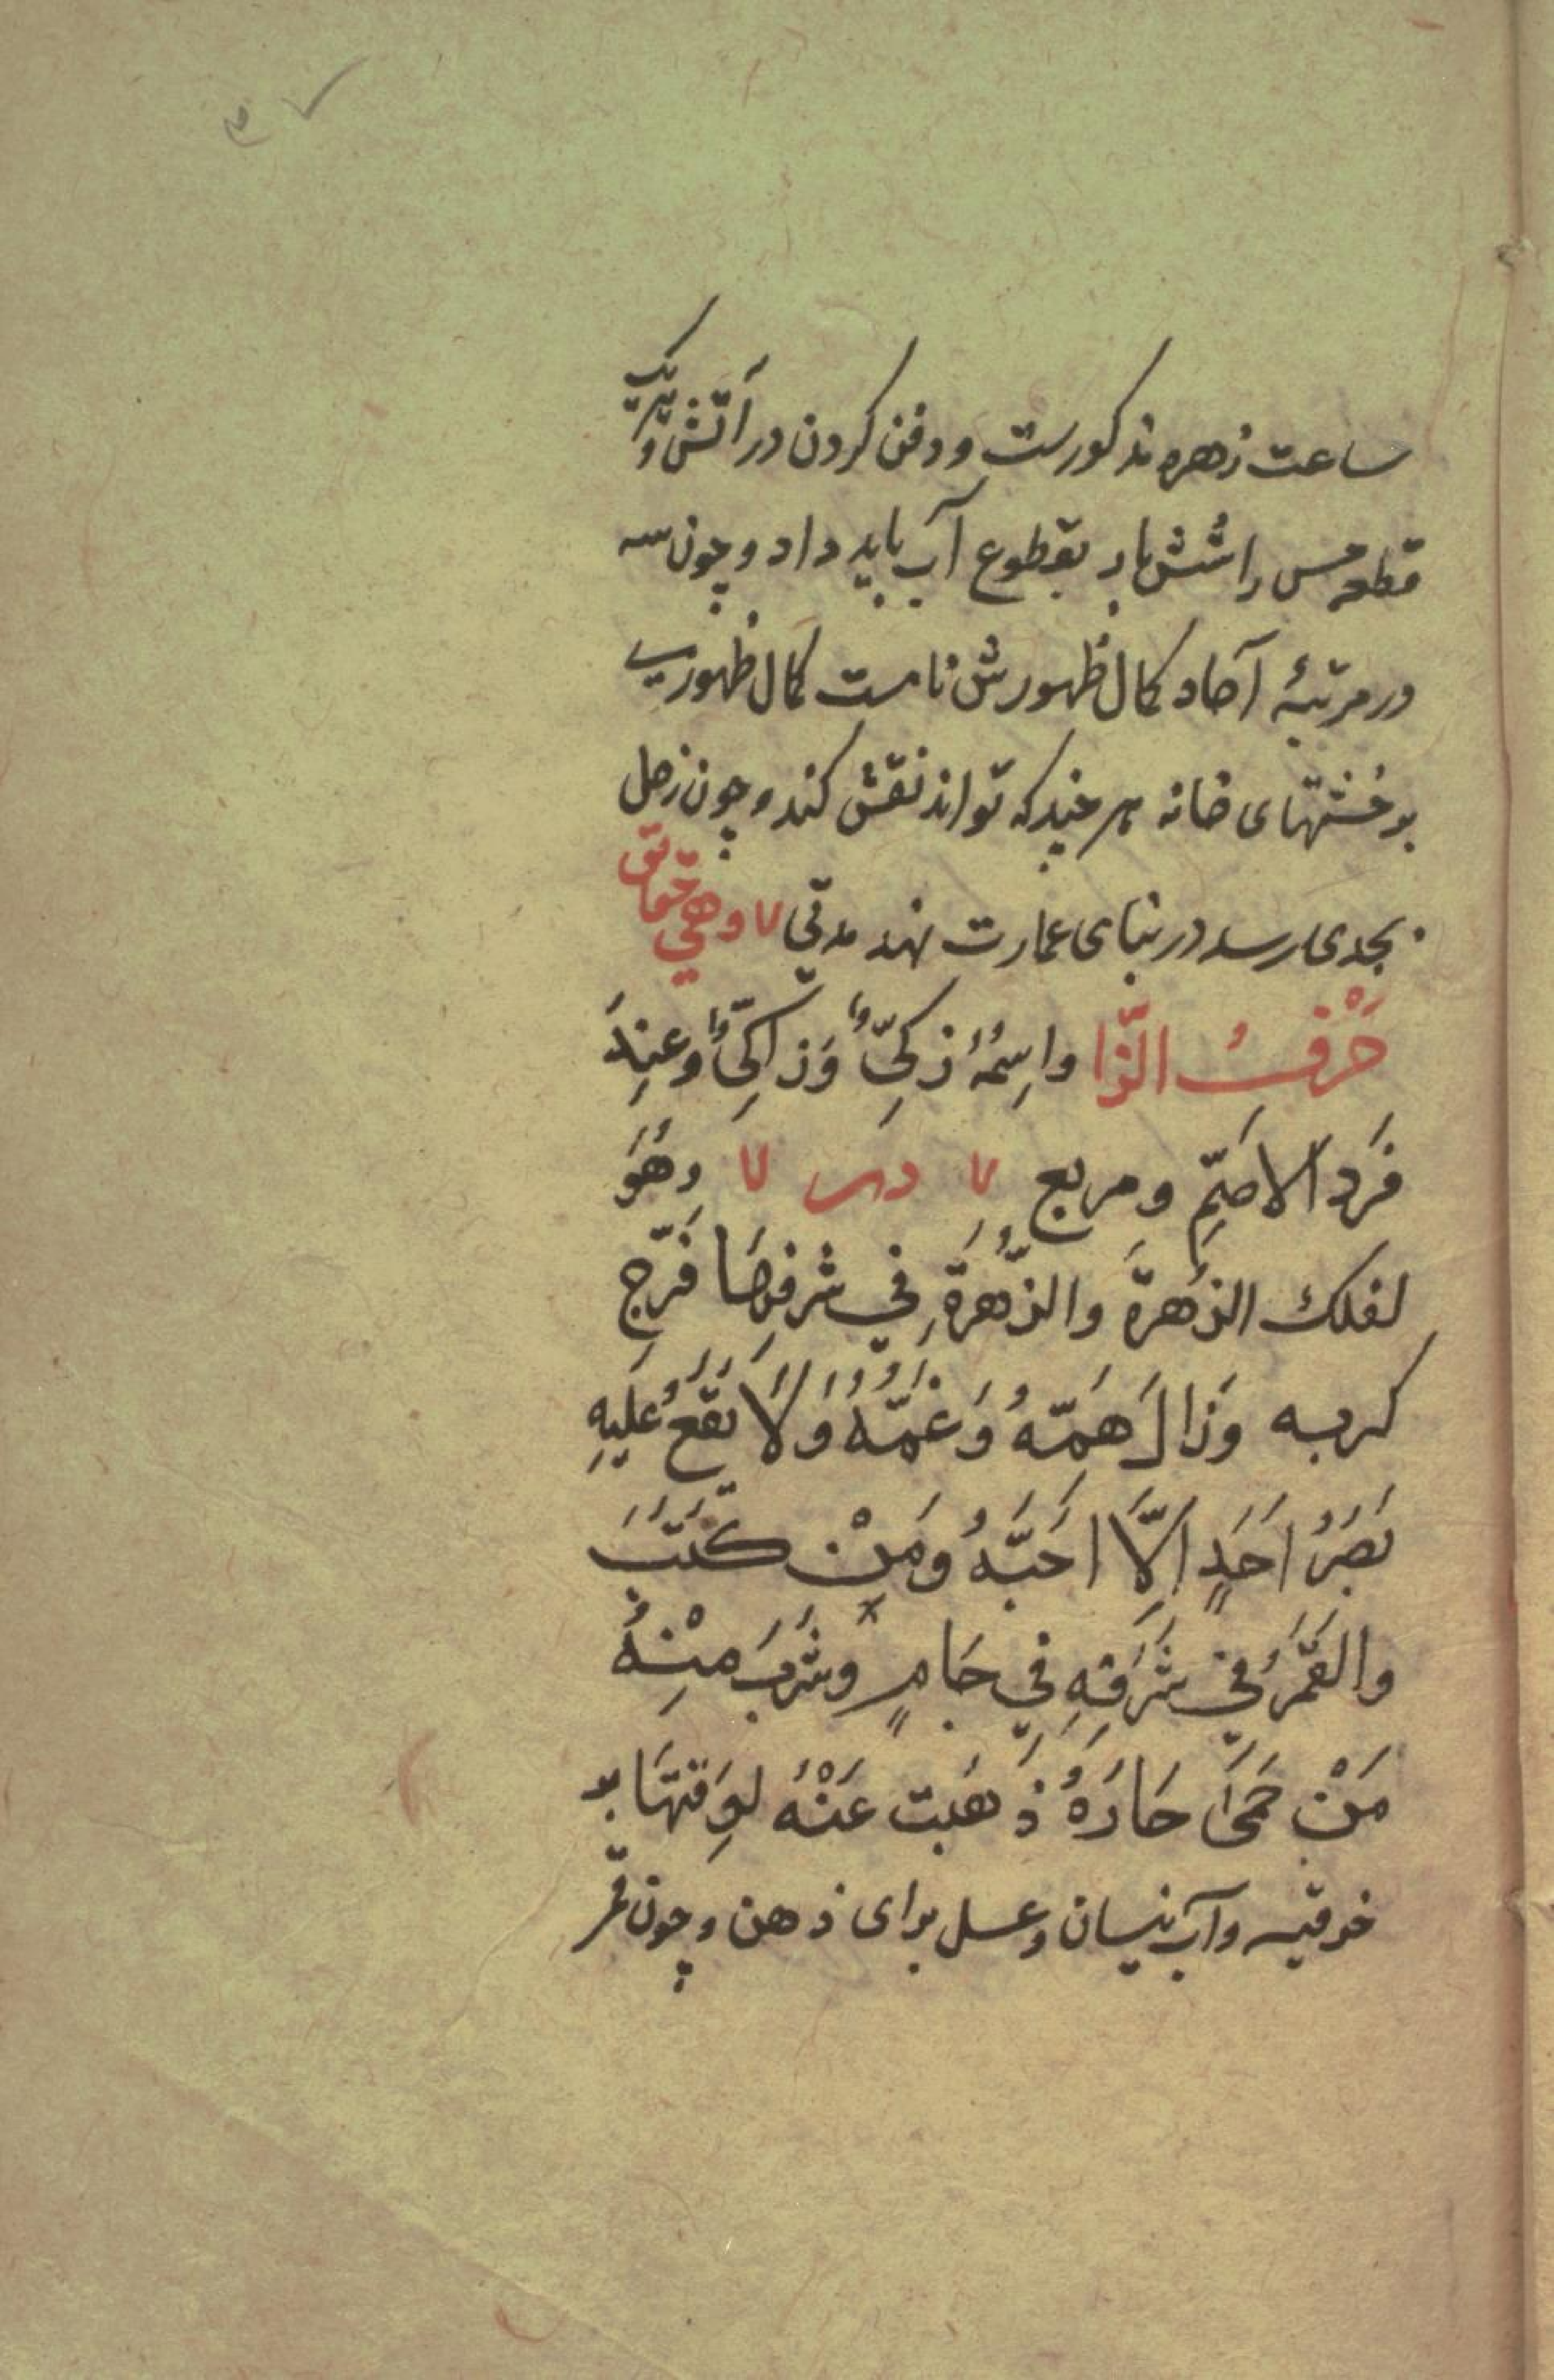 ساعت زهره مذکورست و دفن کردن در آتش و
قطعه مس را شش بار بقطوع آب باید داد و چون سه
در مرتبهٔ آحاد کمال ظهورش تا مست کمال ظهور
بر خشتهای خانه هر چند که تواند نقش کند و چون زحل
بجدی رسد در بنای عمارت نهد مدتی ۷ و هي
حَرْفُ الزّا واسِمُهُ زکِيّ وَزاکِيّ وعِندَ
فَرد الاصَمِّ ومربع ۷ ۷ وهُوَ
لفلك الزُهرةَ والزُّهرَةِ في شرفِهَا فَرّج
كربه وَزالَ هَمّهُ وَغمّهُ وَلَا يَقَعُ عَلَيهِ
بَصَرُ اَحَدٍ اِلَّا اَحَبَّهُ ومَنْ كَتَبَ
والقَمَرُ في شَرَفِهِ فِي جَامٍ وشَرِبَ مِنْهُ
مَنْ حَمَیٰ حَارَهُ ذَهَبت عَنْهُ لِوَقتهَا بر
خوقیه وآب نیسان وعسل برای ذهن و چون قمر